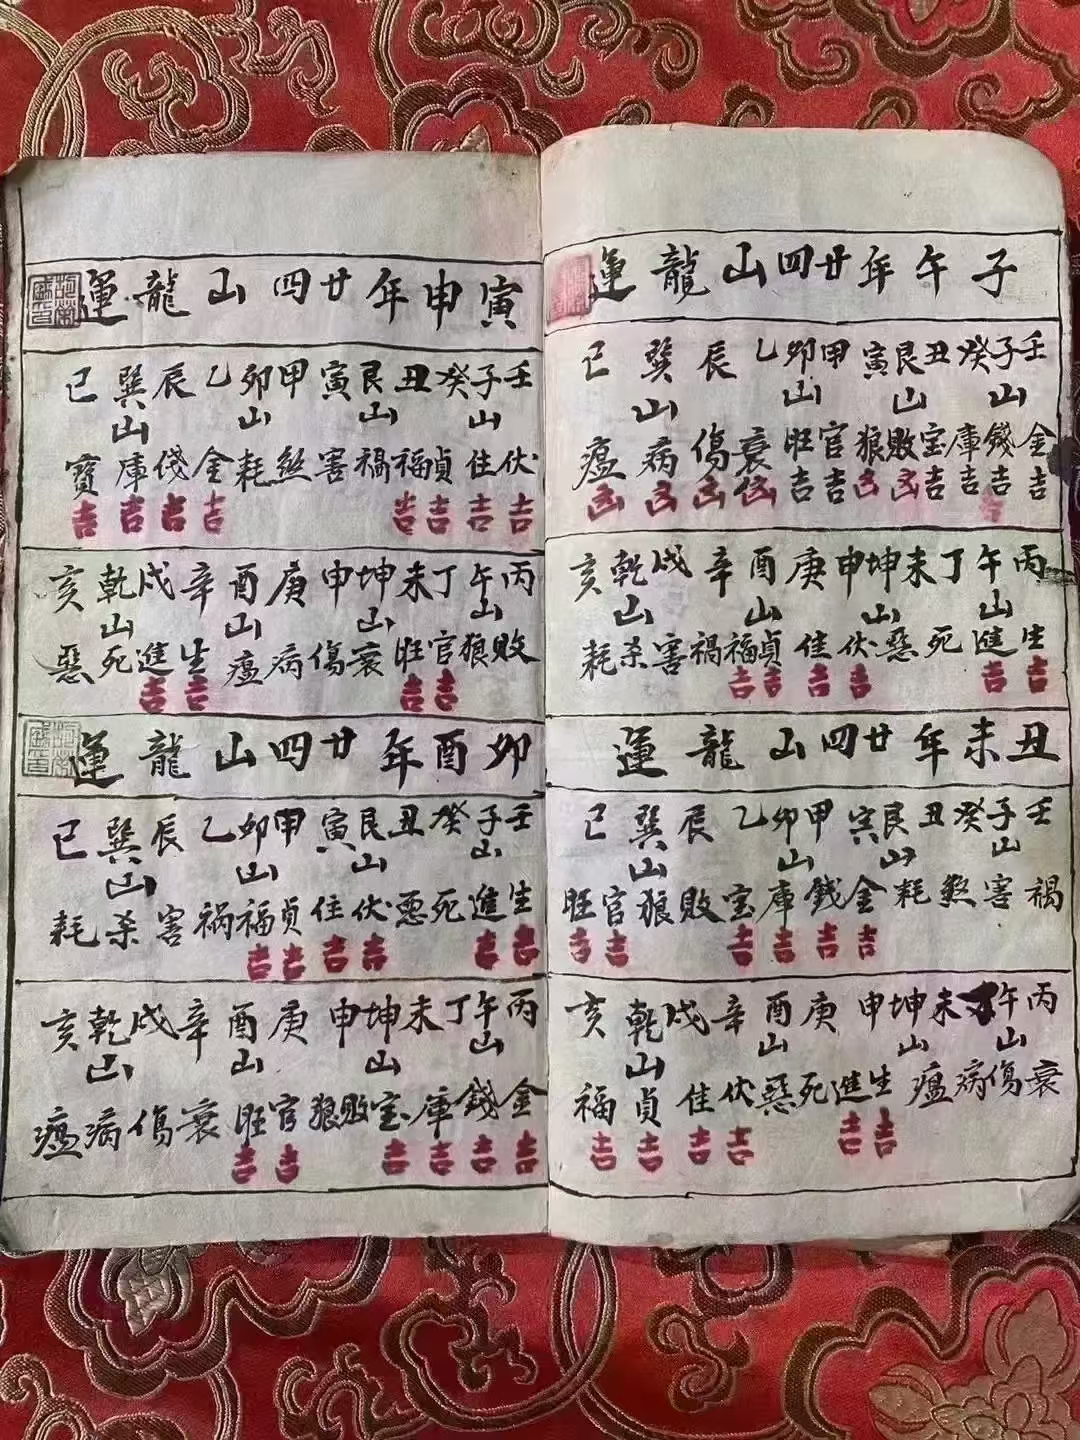 子午年廿四山龍運
壬子癸丑艮寅甲卯乙辰巽巳
山山山山
金錢庫宝敗狼官旺衰傷病瘟
吉吉吉吉凶凶吉吉凶凶凶凶
丙午丁未坤申庚酉辛戌乾亥
山山山山
生進死惡伏佳貞福禍害杀耗
吉吉吉吉吉吉
丑未年廿四山龍運
壬子癸丑艮寅甲卯乙辰巽巳
山山山山
禍害煞耗金錢庫宝敗狼官旺
吉吉吉吉吉吉
丙午丁未坤申庚酉辛戌乾亥
山山山山
衰傷病瘟生進死惡伏佳貞福
吉吉吉吉吉吉
寅申年廿四山龍運
壬子癸丑艮寅甲卯乙辰巽巳
山山山山
伏住貞福禍害煞耗金錢庫寳
吉吉吉吉吉吉吉吉
丙午丁未坤申庚酉辛戌乾亥
山山山山
敗狼官旺衰傷病瘟生進死惡
吉吉吉吉
卯酉年廿四山龍運
壬子癸丑艮寅甲卯乙辰巽巳
山山山山
生進死悪伏住貞福祸害杀耗
吉吉吉吉吉吉
丙午丁未坤申庚酉辛戌乾亥
山山山山
金錢庫宝敗狼官旺衰傷病瘟
吉吉吉吉吉吉